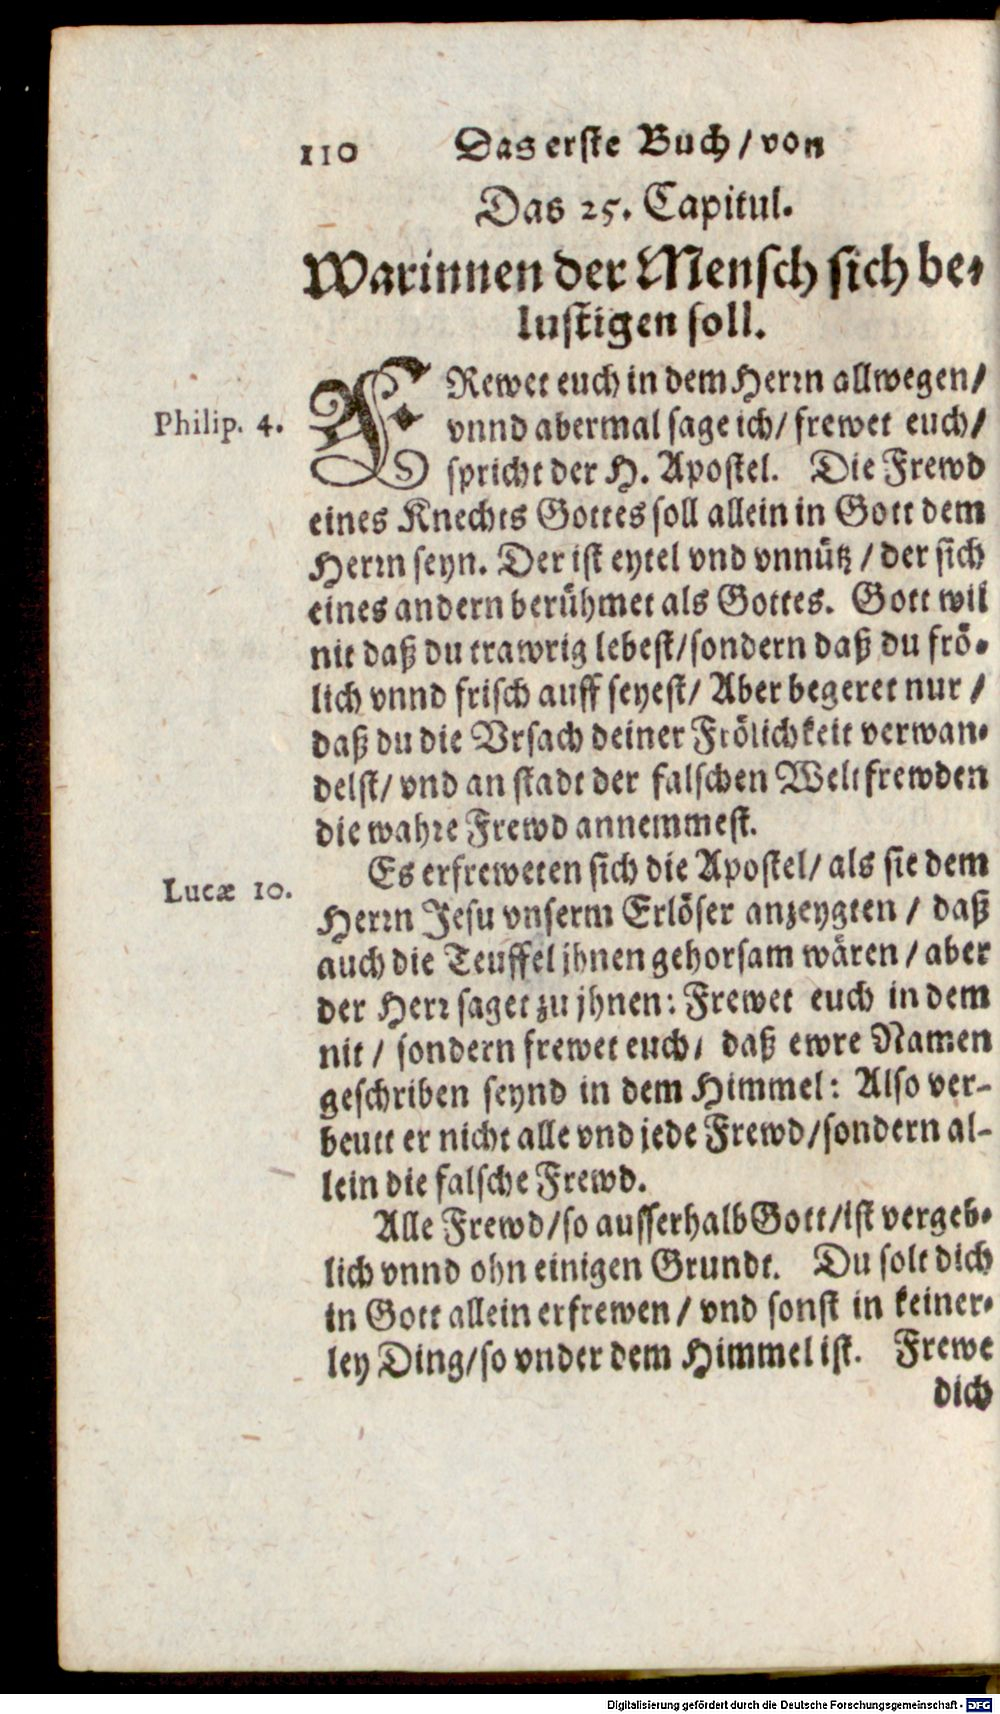 110 Das erste Buch / von
Das 25. Capitul.
Warinnen der Mensch sich be-
lustigen soll.
Philip. 4.
FRewet euch in dem Herrn allwegen /
vnnd abermal sage ich / frewet euch /
spricht der H. Apostel. Die Frewd
eines Knechts Gottes soll allein in Gott dem
Herrn seyn. Der ist eytel vnd vnnütz / der sich
eines andern berühmet als Gottes. Gott wil
nit daß du trawrig lebest / sondern daß du frö-
lich vnnd frisch auff seyest / Aber begeret nur /
daß du die Vrsach deiner Frölichkeit verwan-
delst / vnd an stadt der falschen Weltfrewden
die wahre Frewd annemmest.
Lucæ 10.
Es erfreweten sich die Apostel / als sie dem
Herrn Jesu vnserm Erlöser anzeygten / daß
auch die Teuffel jhnen gehorsam wären / aber
der Herr saget zu jhnen: Frewet euch in dem
nit / sondern frewet euch / daß ewre Namen
geschriben seynd in dem Himmel: Also ver-
beutt er nicht alle vnd jede Frewd / sondern al-
lein die falsche Frewd.
Alle Frewd / so ausserhalb Gott / ist vergeb-
lich vnnd ohn einigen Grundt. Du solt dich
in Gott allein erfrewen / vnd sonst in keiner-
ley Ding / so vnder dem Himmel ist. Frewe
dich
Digitalisierung gefördert durch die Deutsche Forschungsgemeinschaft - DFG